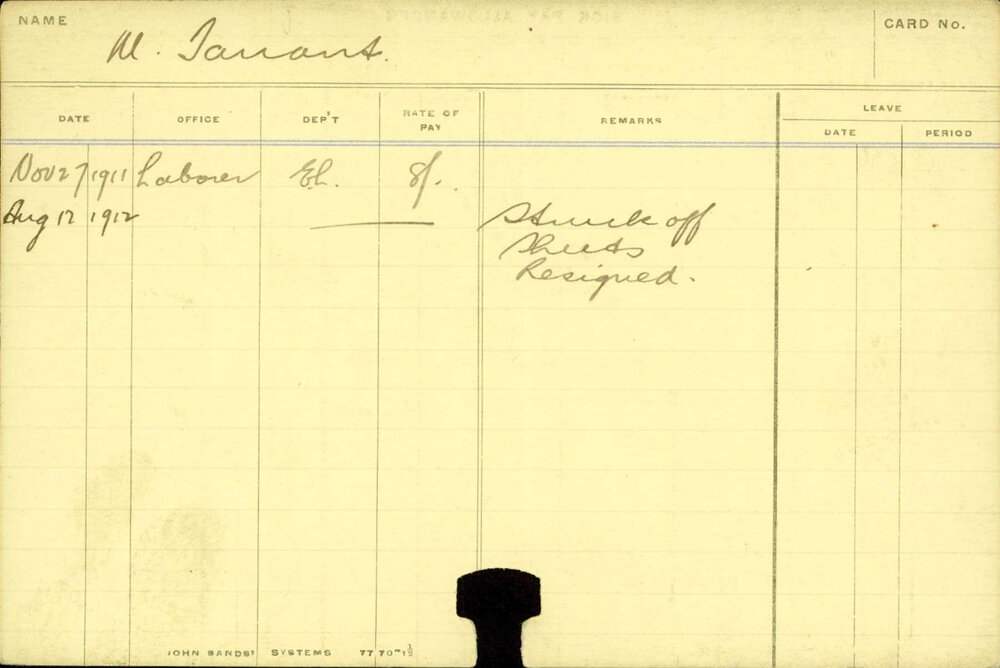 NAME
M. Tarrant.
CARD No.
DATE OFFICE DEP'T RATE OF PAY REMARKS LEAVE
DATE PERIOD
Nov 27 1911 Laborer E.L. 8/-.
Aug 12 1912 Struck off
Sheets
Resigned.
JOHN SANDS' SYSTEMS 77 70